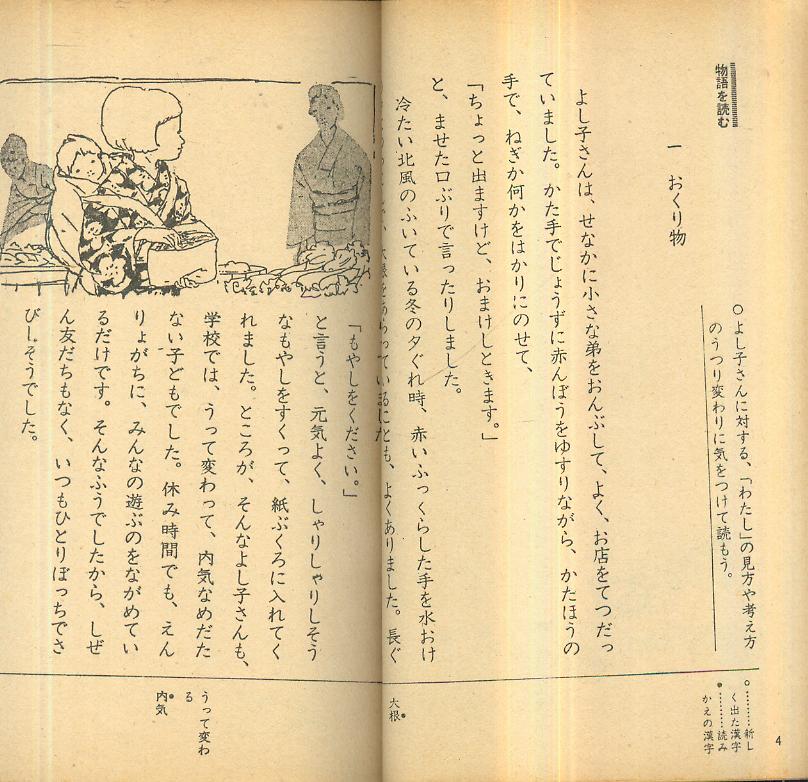 物語を読む
一　おくり物
○よし子さんに対する、「わたし」の見方や考え方
のうつり変わりに気をつけて読もう。
よし子さんは、せなかに小さな弟をおんぶして、よく、お店をてつだっ
ていました。かた手でじょうずに赤んぼうをゆすりながら、かたほうの
手で、ねぎか何かをはかりにのせて、
「ちょっと出ますけど、おまけしときます。」
と、ませた口ぶりで言ったりしました。
冷たい北風のふいている冬の夕ぐれ時、赤いふっくらした手を水おけ
大根をあらっているにとも、よくありました。長ぐ
「もやしをください。」
と言うと、元気よく、しゃりしゃりしそう
なもやしをすくって、紙ぶくろに入れてく
れました。ところが、そんなよし子さんも、
学校では、うって変わって、内気なめだた
ない子どもでした。休み時間でも、えん
りょがちに、みんなの遊ぶのをながめてい
るだけです。そんなふうでしたから、しぜ
ん友だちもなく、いつもひとりぼっちでさ
びしそうでした。
○………新し
く出た漢字
●………読み
かえの漢字
大根●
うって変わ
る
内●気
4